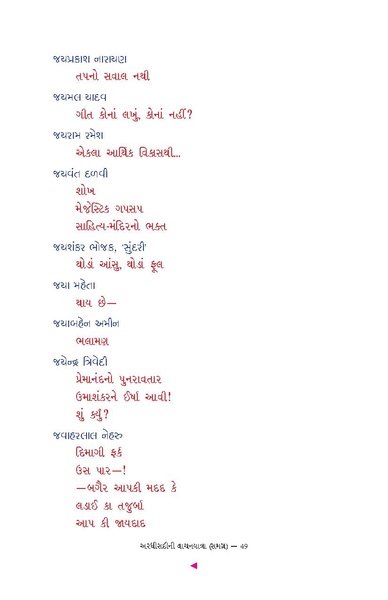 જયપ્રકાશ નારાયણ
તપનો સવાલ નથી
જયમલ યાદવ
ગીત કોનાં લખું, કોનાં નહીં?
જયરામ રમેશ
એકલા આર્થિક વિકાસથી...
જયવંત દળવી
શોખ
મેજેસ્ટિક ગપસપ
સાહિત્ય-મંદિરનો ભક્ત
જયશંકર ભોજક, 'સુંદરી'
થોડાં આંસુ, થોડાં ફૂલ
જયા મહેતા
થાય છે—
જયાબહેન અમીન
ભલામણ
જયેન્દ્ર ત્રિવેદી
પ્રેમાનંદનો પુનરાવતાર
ઉમાશંકરને ઈર્ષા આવી!
શું કર્યું?
જવાહરલાલ નેહરુ
દિમાગી ફર્ક
ઉસ પાર—!
—બગૈર આપકી મદદ કે
લડાઈ કા તજુર્બા
આપ કી જાયદાદ
અરધીસદીની વાચનયાત્રા (સમગ્ર) — 49